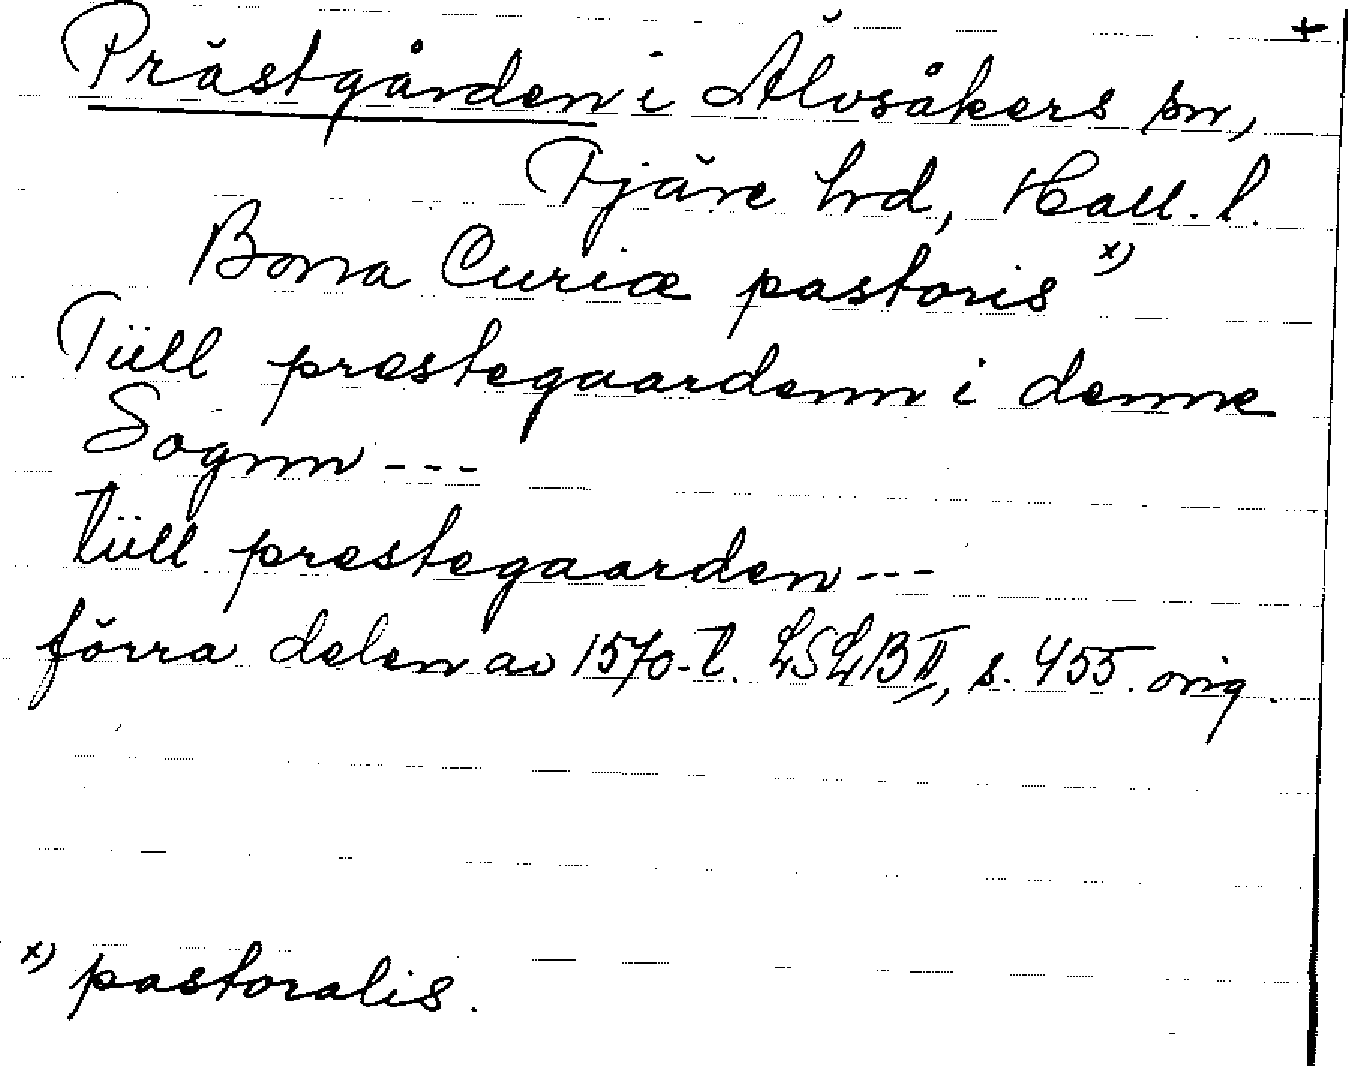 +
Prästgården i Älvsåkers sn,
Fjäre hrd, Hall. l.
Bona Curiæ pastoris x)
Tüll prestegaardenn i denne
Sognn ---
tüll prestegaarden ---
förra delen av 1570-t. LSLB II, s. 455. orig.
x) pastoralis.